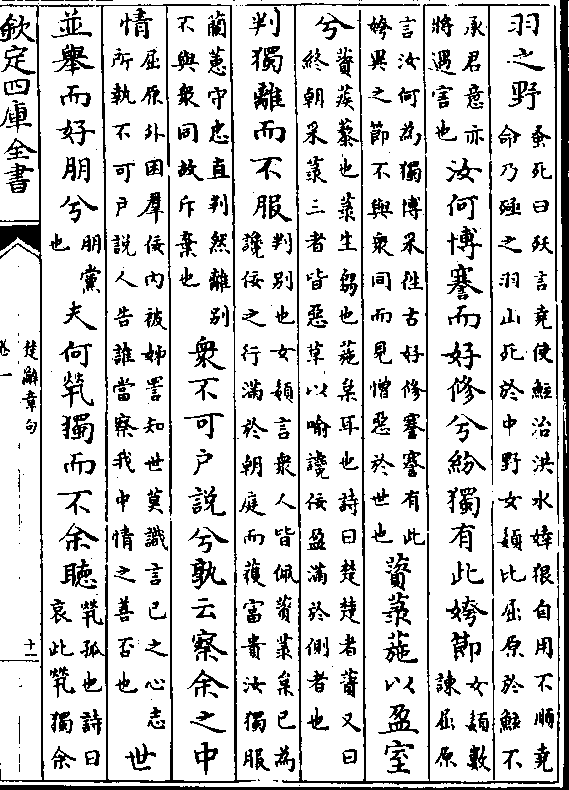 羽之野蚤死曰殀言堯使鯀治洪水婞狠自用不順堯
命乃殛之羽山死於中野女嬃比屈原於鯀不
承君意亦
將遇害也汝何博謇而好修兮紛獨有此姱節女嬃數
諫屈原
言汝何為獨博采往古好修蹇蹇有此
姱異之節不與衆同而見憎惡於世也薋菉葹以盈室
兮薋蒺藜也菉生芻也葹枲耳也詩曰楚楚者薋又曰
終朝采菉三者皆惡草以喻讒佞盈滿於側者也
判獨離而不服判別也女嬃言衆人皆佩薋菉枲已為
讒佞之行滿於朝庭而獲富貴汝獨服
蘭蕙守忠直判然離別
不與衆同故斥棄也衆不可户説兮孰云察余之中
情屈原外困羣佞内被姊詈知世莫識言已之心志
所執不可户説人告誰當察我中情之善否也世
並舉而好朋兮朋黨
也夫何煢獨而不余聽煢孤也詩曰
哀此煢獨余
欽定四庫全書
楚辭章句
卷一
十一